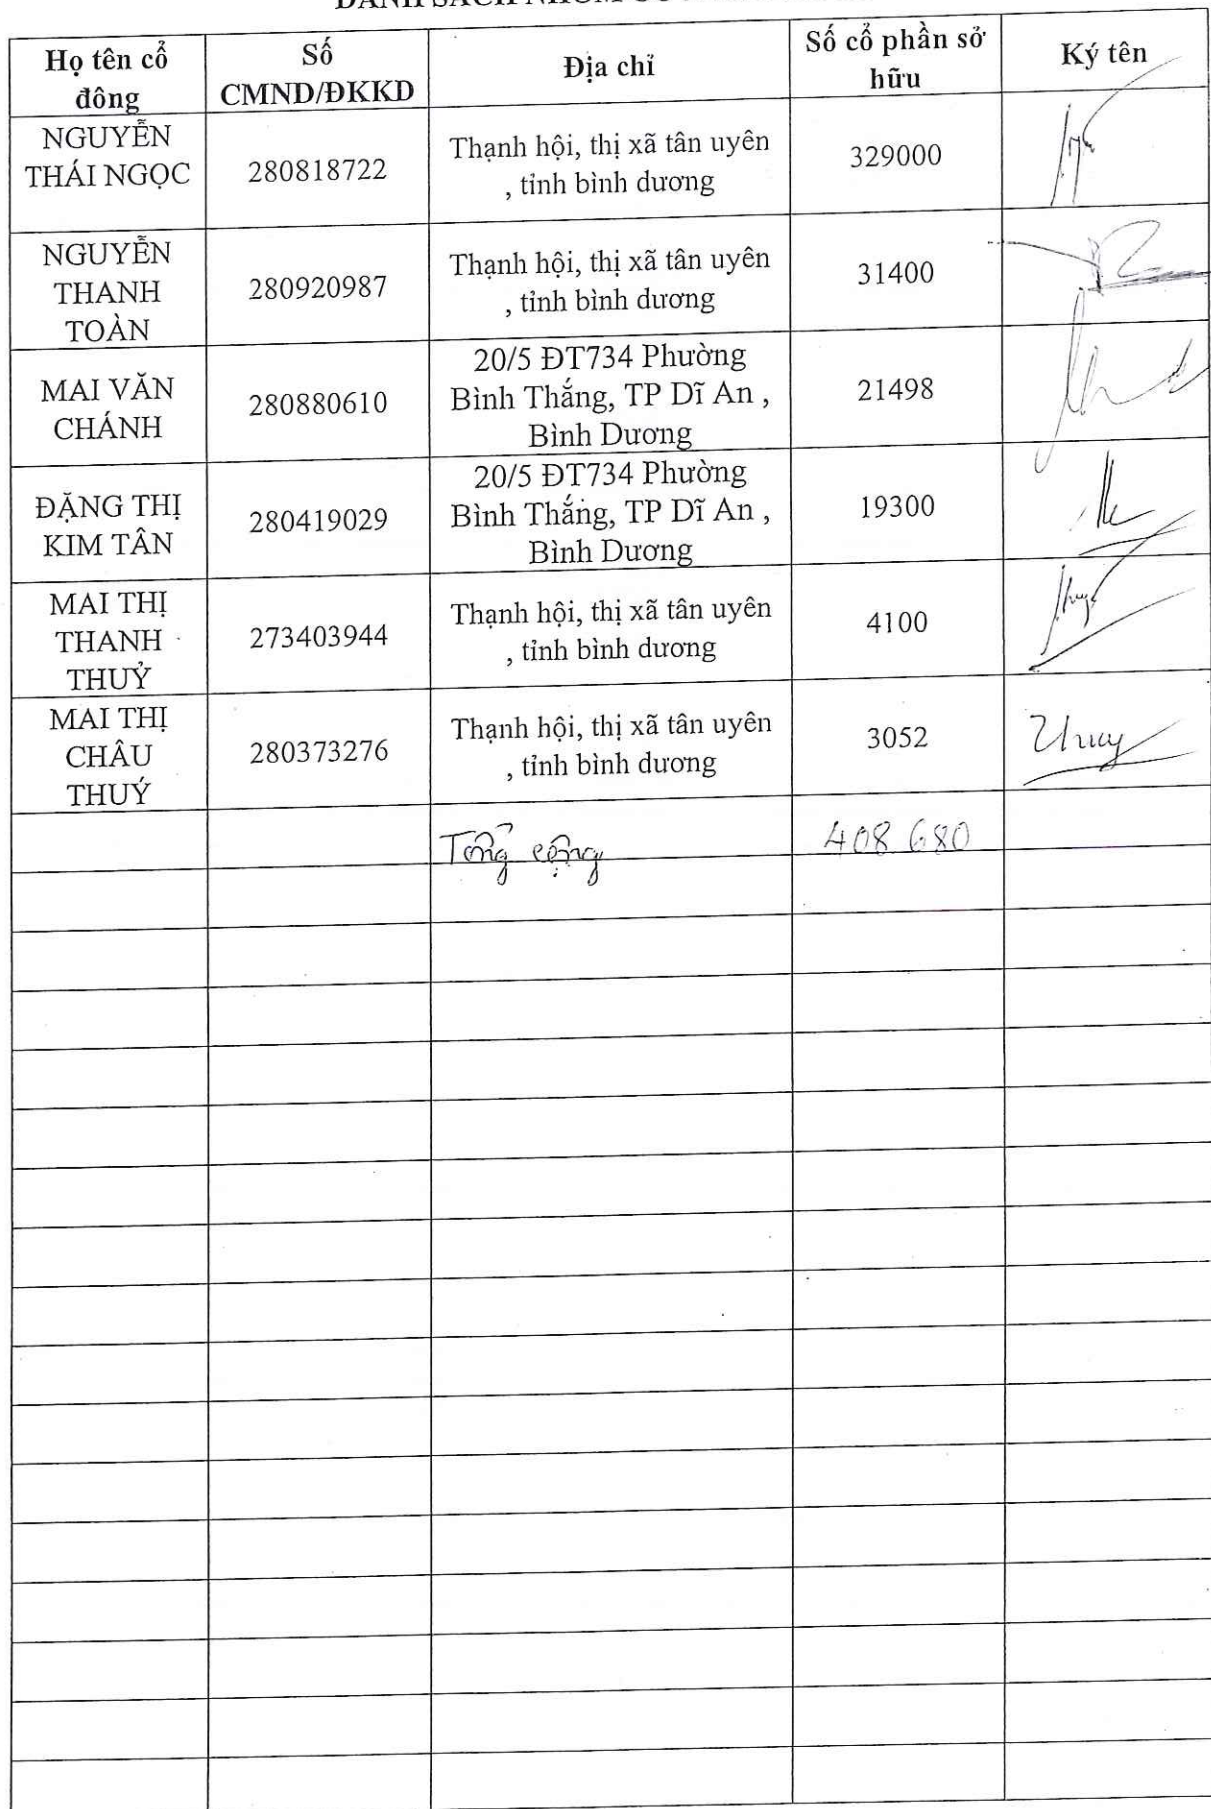 DANH SÁCH NHÓM
Họ tên cổ
đông
Số
CMND/ĐKKD
Địa chỉ
Số cổ phần sở
hữu
Ký tên
NGUYỄN
THÁI NGỌC
280818722
Thạnh hội, thị xã tân uyên
, tỉnh bình dương
329000
NGUYỄN
THANH
TOÀN
280920987
Thạnh hội, thị xã tân uyên
, tỉnh bình dương
31400
MAI VĂN
CHÁNH
280880610
20/5 ĐT734 Phường
Bình Thắng, TP Dĩ An ,
Bình Dương
21498
ĐẶNG THỊ
KIM TÂN
280419029
20/5 ĐT734 Phường
Bình Thắng, TP Dĩ An ,
Bình Dương
19300
MAI THỊ
THANH
THUỶ
273403944
Thạnh hội, thị xã tân uyên
, tỉnh bình dương
4100
MAI THỊ
CHÂU
THUÝ
280373276
Thạnh hội, thị xã tân uyên
, tỉnh bình dương
3052
Thuy
Tổng cộng
408 680